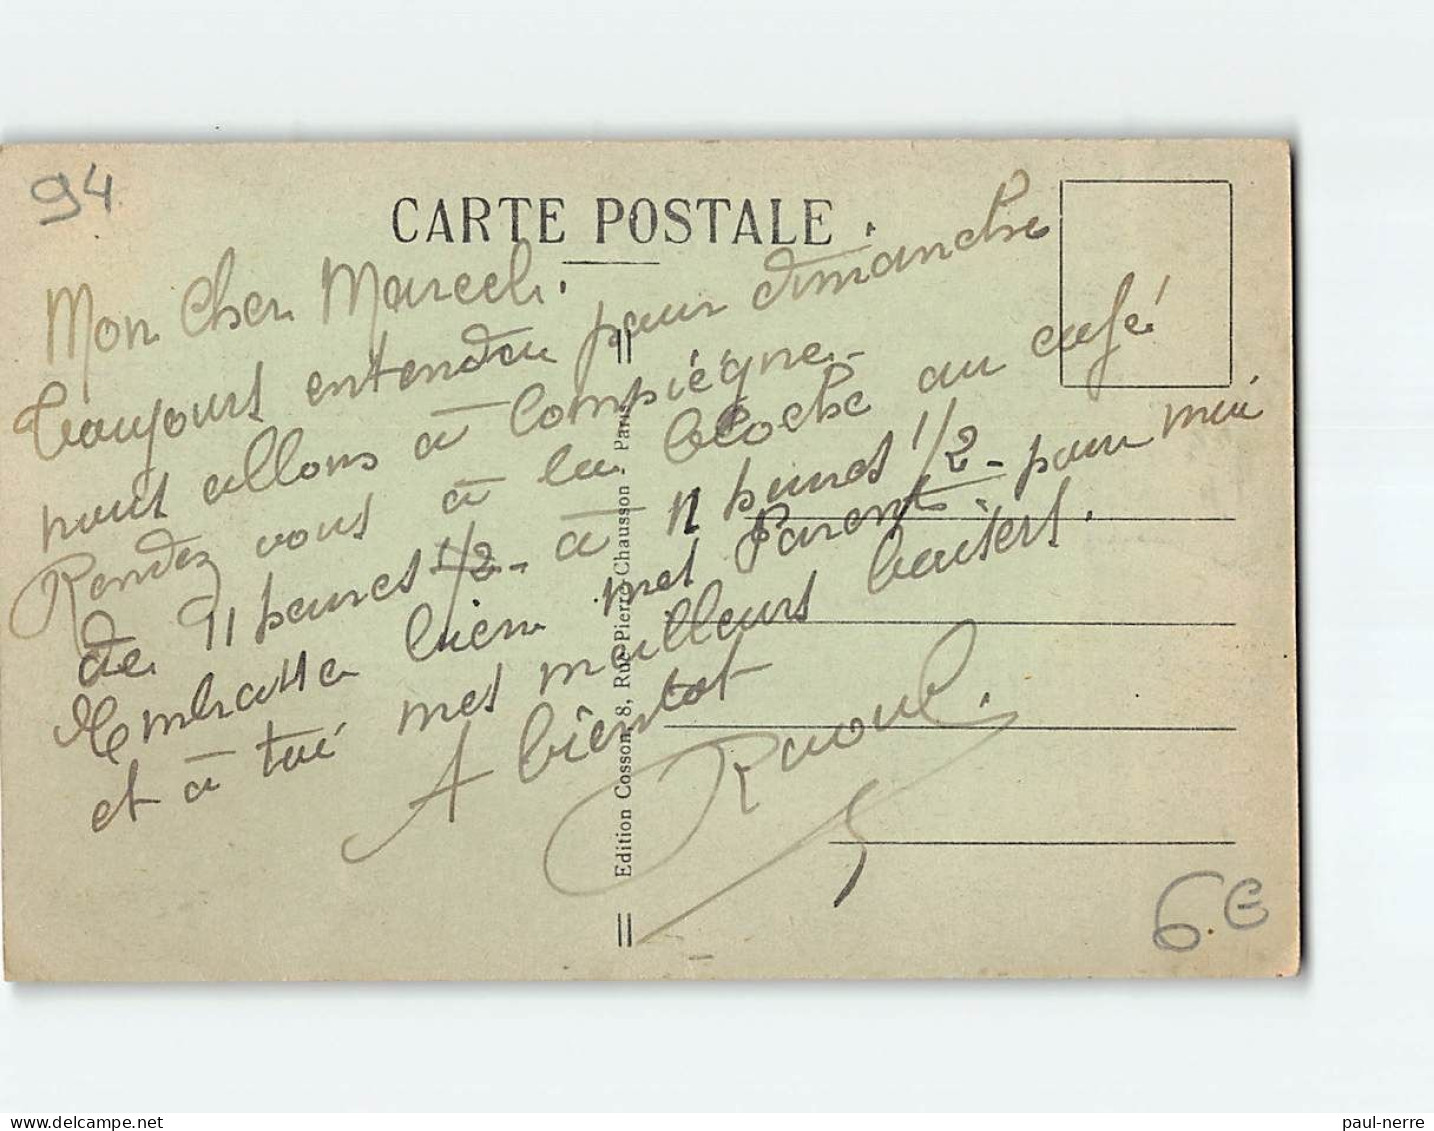 94
CARTE POSTALE
Mon cher Marcel.
Toujours entendu pour dimanche
nous allons à Compiègne.
Rendez vous à la cloche au café
de 11 heures 1/2 - à 12 heures 1/2 -
Embrasse bien mes Parents pour moi
et à toi mes meilleurs baisers.
A bientot
Raoul.
Edition Cosson, 8, Rue Pierre Chausson, Paris
6 €
paul-nerre